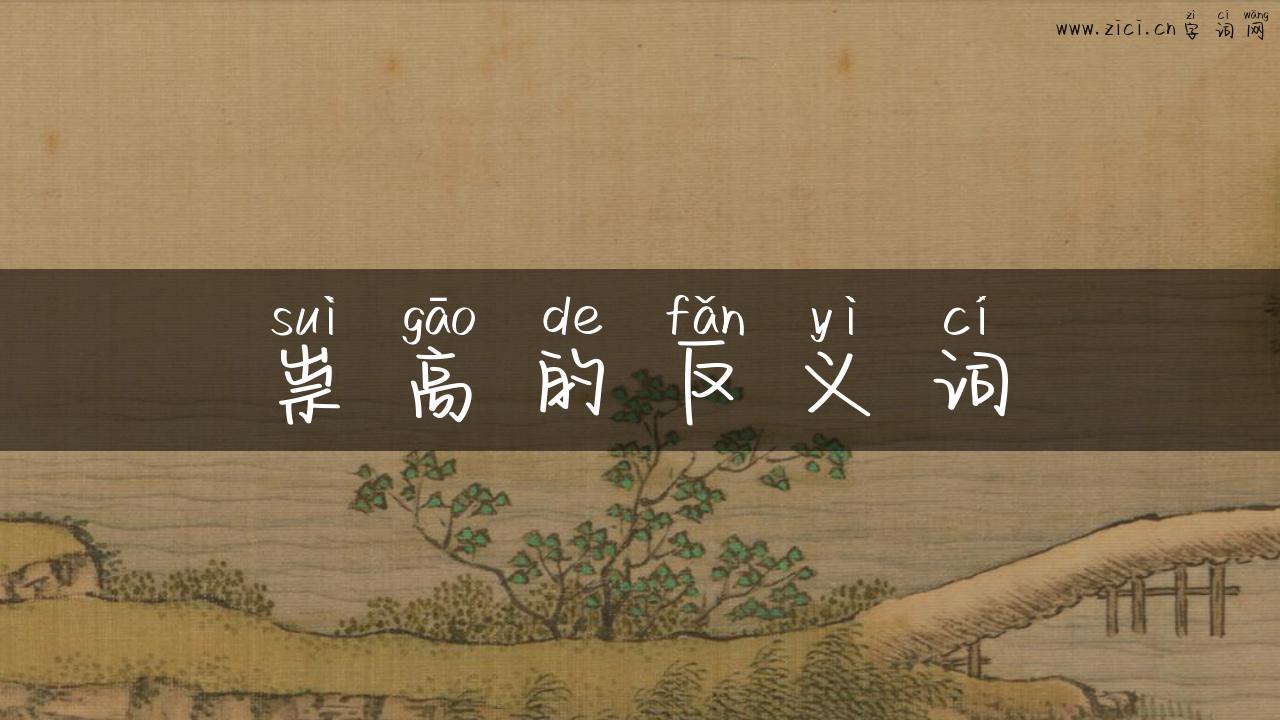 zì cí wǎng
www.zici.cn 字词网
suì gāo de fǎn yì cí
祟高的反义词